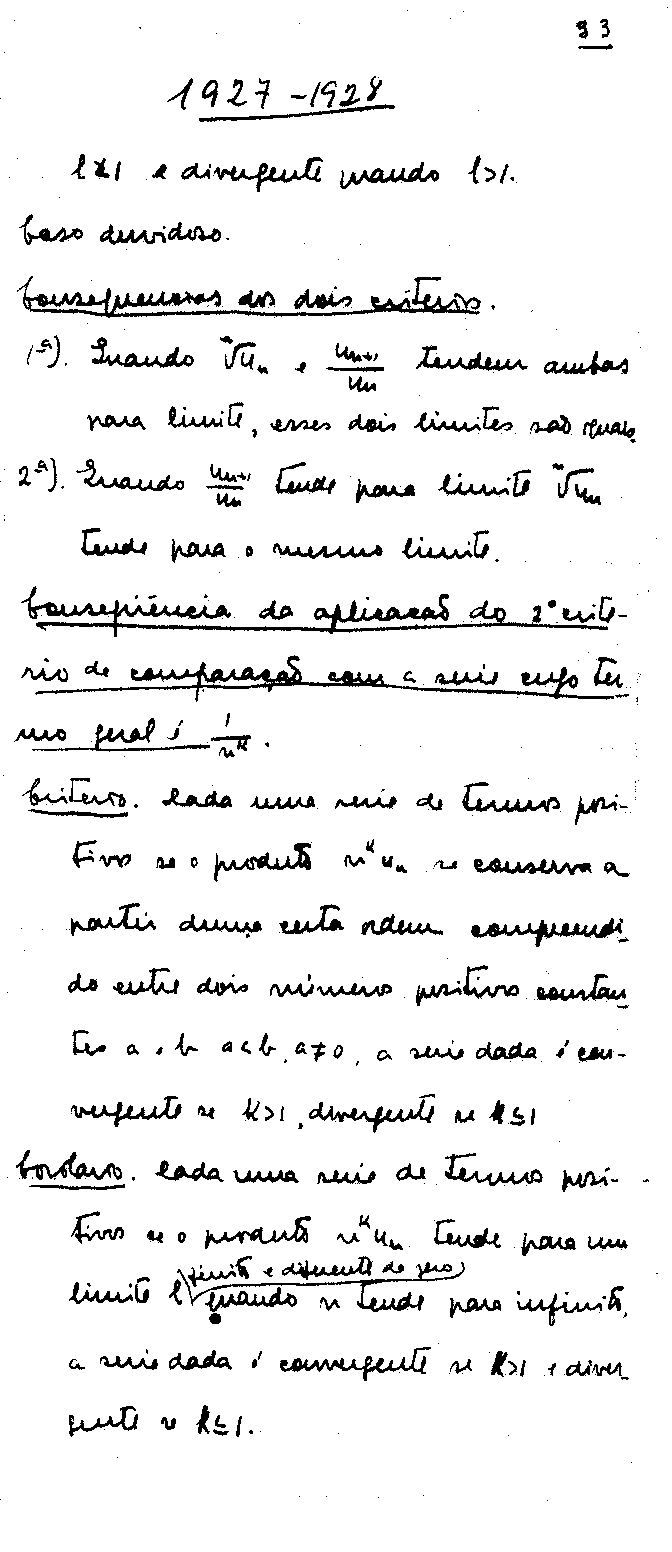 93
1927-1928
l<1 e divergente quando l>1.
Caso duvidoso.
Consequencias dos dois criterios.
1ª). Quando ⁿ√uₙ e uₙ₊₁/uₙ tendem ambas
para limite, esses dois limites são iguais.
2ª). Quando uₙ₊₁/uₙ tende para limite ⁿ√uₙ
tende para o mesmo limite.
Consequência da aplicação do 2º crite-
rio de comparação com a serie cujo ter
mo geral é 1/nᴷ.
Criterio. Dada uma serie de termos posi-
tivos se o produto nᴷuₙ se conserva a
partir duma certa ordem compreendi-
do entre dois números positivos constan
tes a e b a<b, a≠0, a serie dada é con-
vergente se K>1, divergente se K≤1
Corolario. Dada uma serie de termos posi-
tivos se o produto nᴷuₙ tende para um
limite l (finito e diferente de zero) quando n tende para infinito,
a serie dada é convergente se K>1 e diver
gente se K≤1.